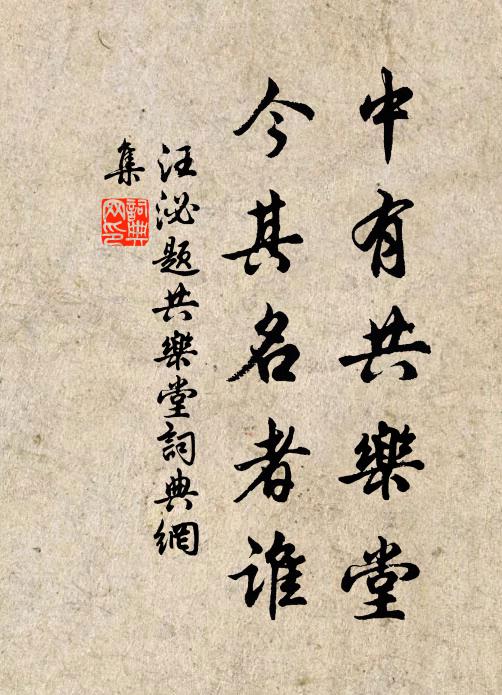 中有共樂堂
今其名者誰
汪泌題共樂堂詞典網
集
詞典
网印